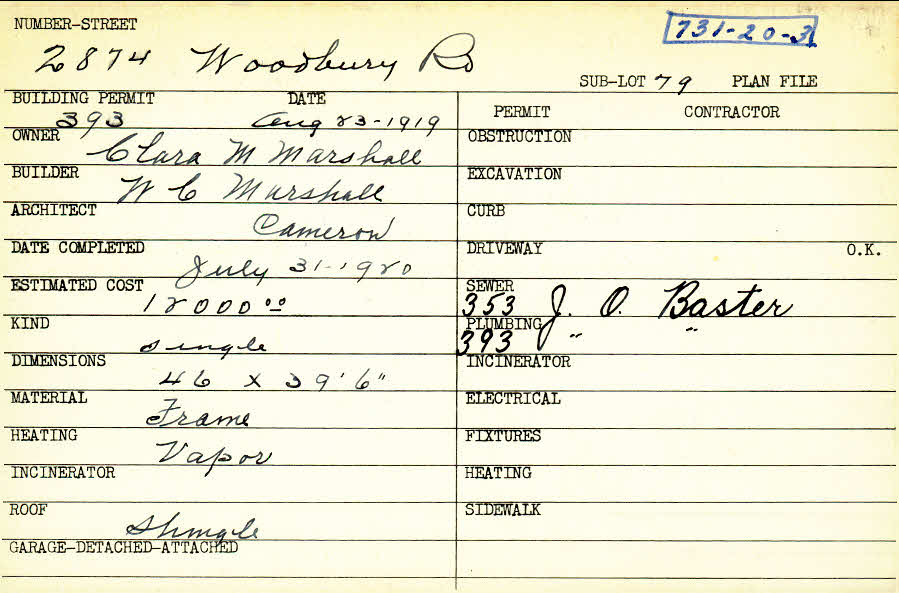 NUMBER-STREET
731-20-3
2874 Woodbury Rd
SUB-LOT 79 PLAN FILE
BUILDING PERMIT DATE
393 Aug 23-1919
OWNER
Clara M Marshall
BUILDER
W C Marshall
ARCHITECT
Cameron
DATE COMPLETED
July 31-1920
ESTIMATED COST
12000 00
KIND
Single
DIMENSIONS
46 x 39'6"
MATERIAL
Frame
HEATING
Vapor
INCINERATOR
ROOF
Shingle
GARAGE-DETACHED-ATTACHED
PERMIT CONTRACTOR
OBSTRUCTION
EXCAVATION
CURB
DRIVEWAY O.K.
SEWER
353 J. O. Baster
PLUMBING
393 " "
INCINERATOR
ELECTRICAL
FIXTURES
HEATING
SIDEWALK